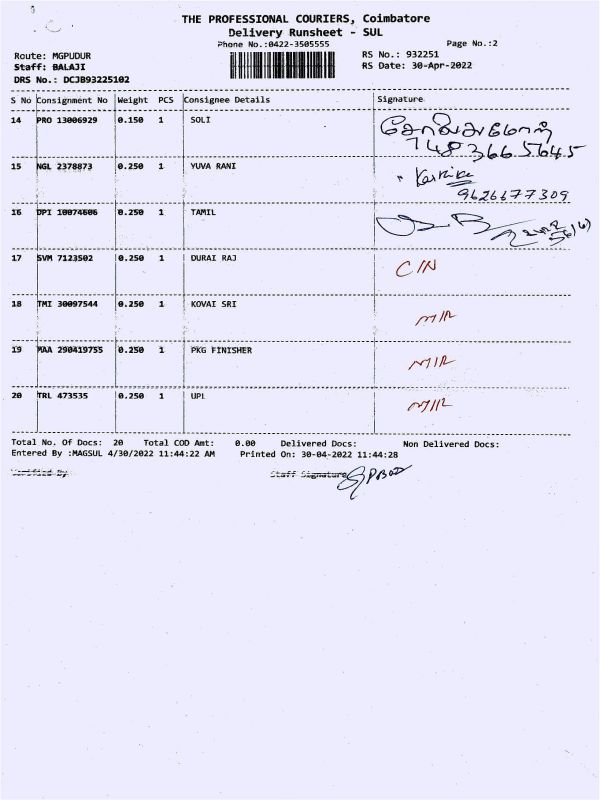 THE PROFESSIONAL COURIERS, Coimbatore
Delivery Runsheet - SUL
Phone No.:0422-3505555
Page No.:2
Route: MGPUDUR
RS No.: 932251
Staff: BALAJI
RS Date: 30-Apr-2022
DRS No.: DCJB93225102
S No Consignment No Weight PCS Consignee Details Signature
14 PRO 13006929 0.150 1 SOLI
748 366 5645
15 NGL 2378873 0.250 1 YUVA RANI Karthika
9626677309
16 DPI 10074606 0.250 1 TAMIL
17 SVM 7123502 0.250 1 DURAI RAJ C/N
18 TMI 30097544 0.250 1 KOVAI SRI M/R
19 MAA 290419755 0.250 1 PKG FINISHER M/R
20 TRL 473535 0.250 1 UPL M/R
Total No. Of Docs: 20 Total COD Amt: 0.00 Delivered Docs: Non Delivered Docs:
Entered By :MAGSUL 4/30/2022 11:44:22 AM Printed On: 30-04-2022 11:44:28
Verified By Staff Signature